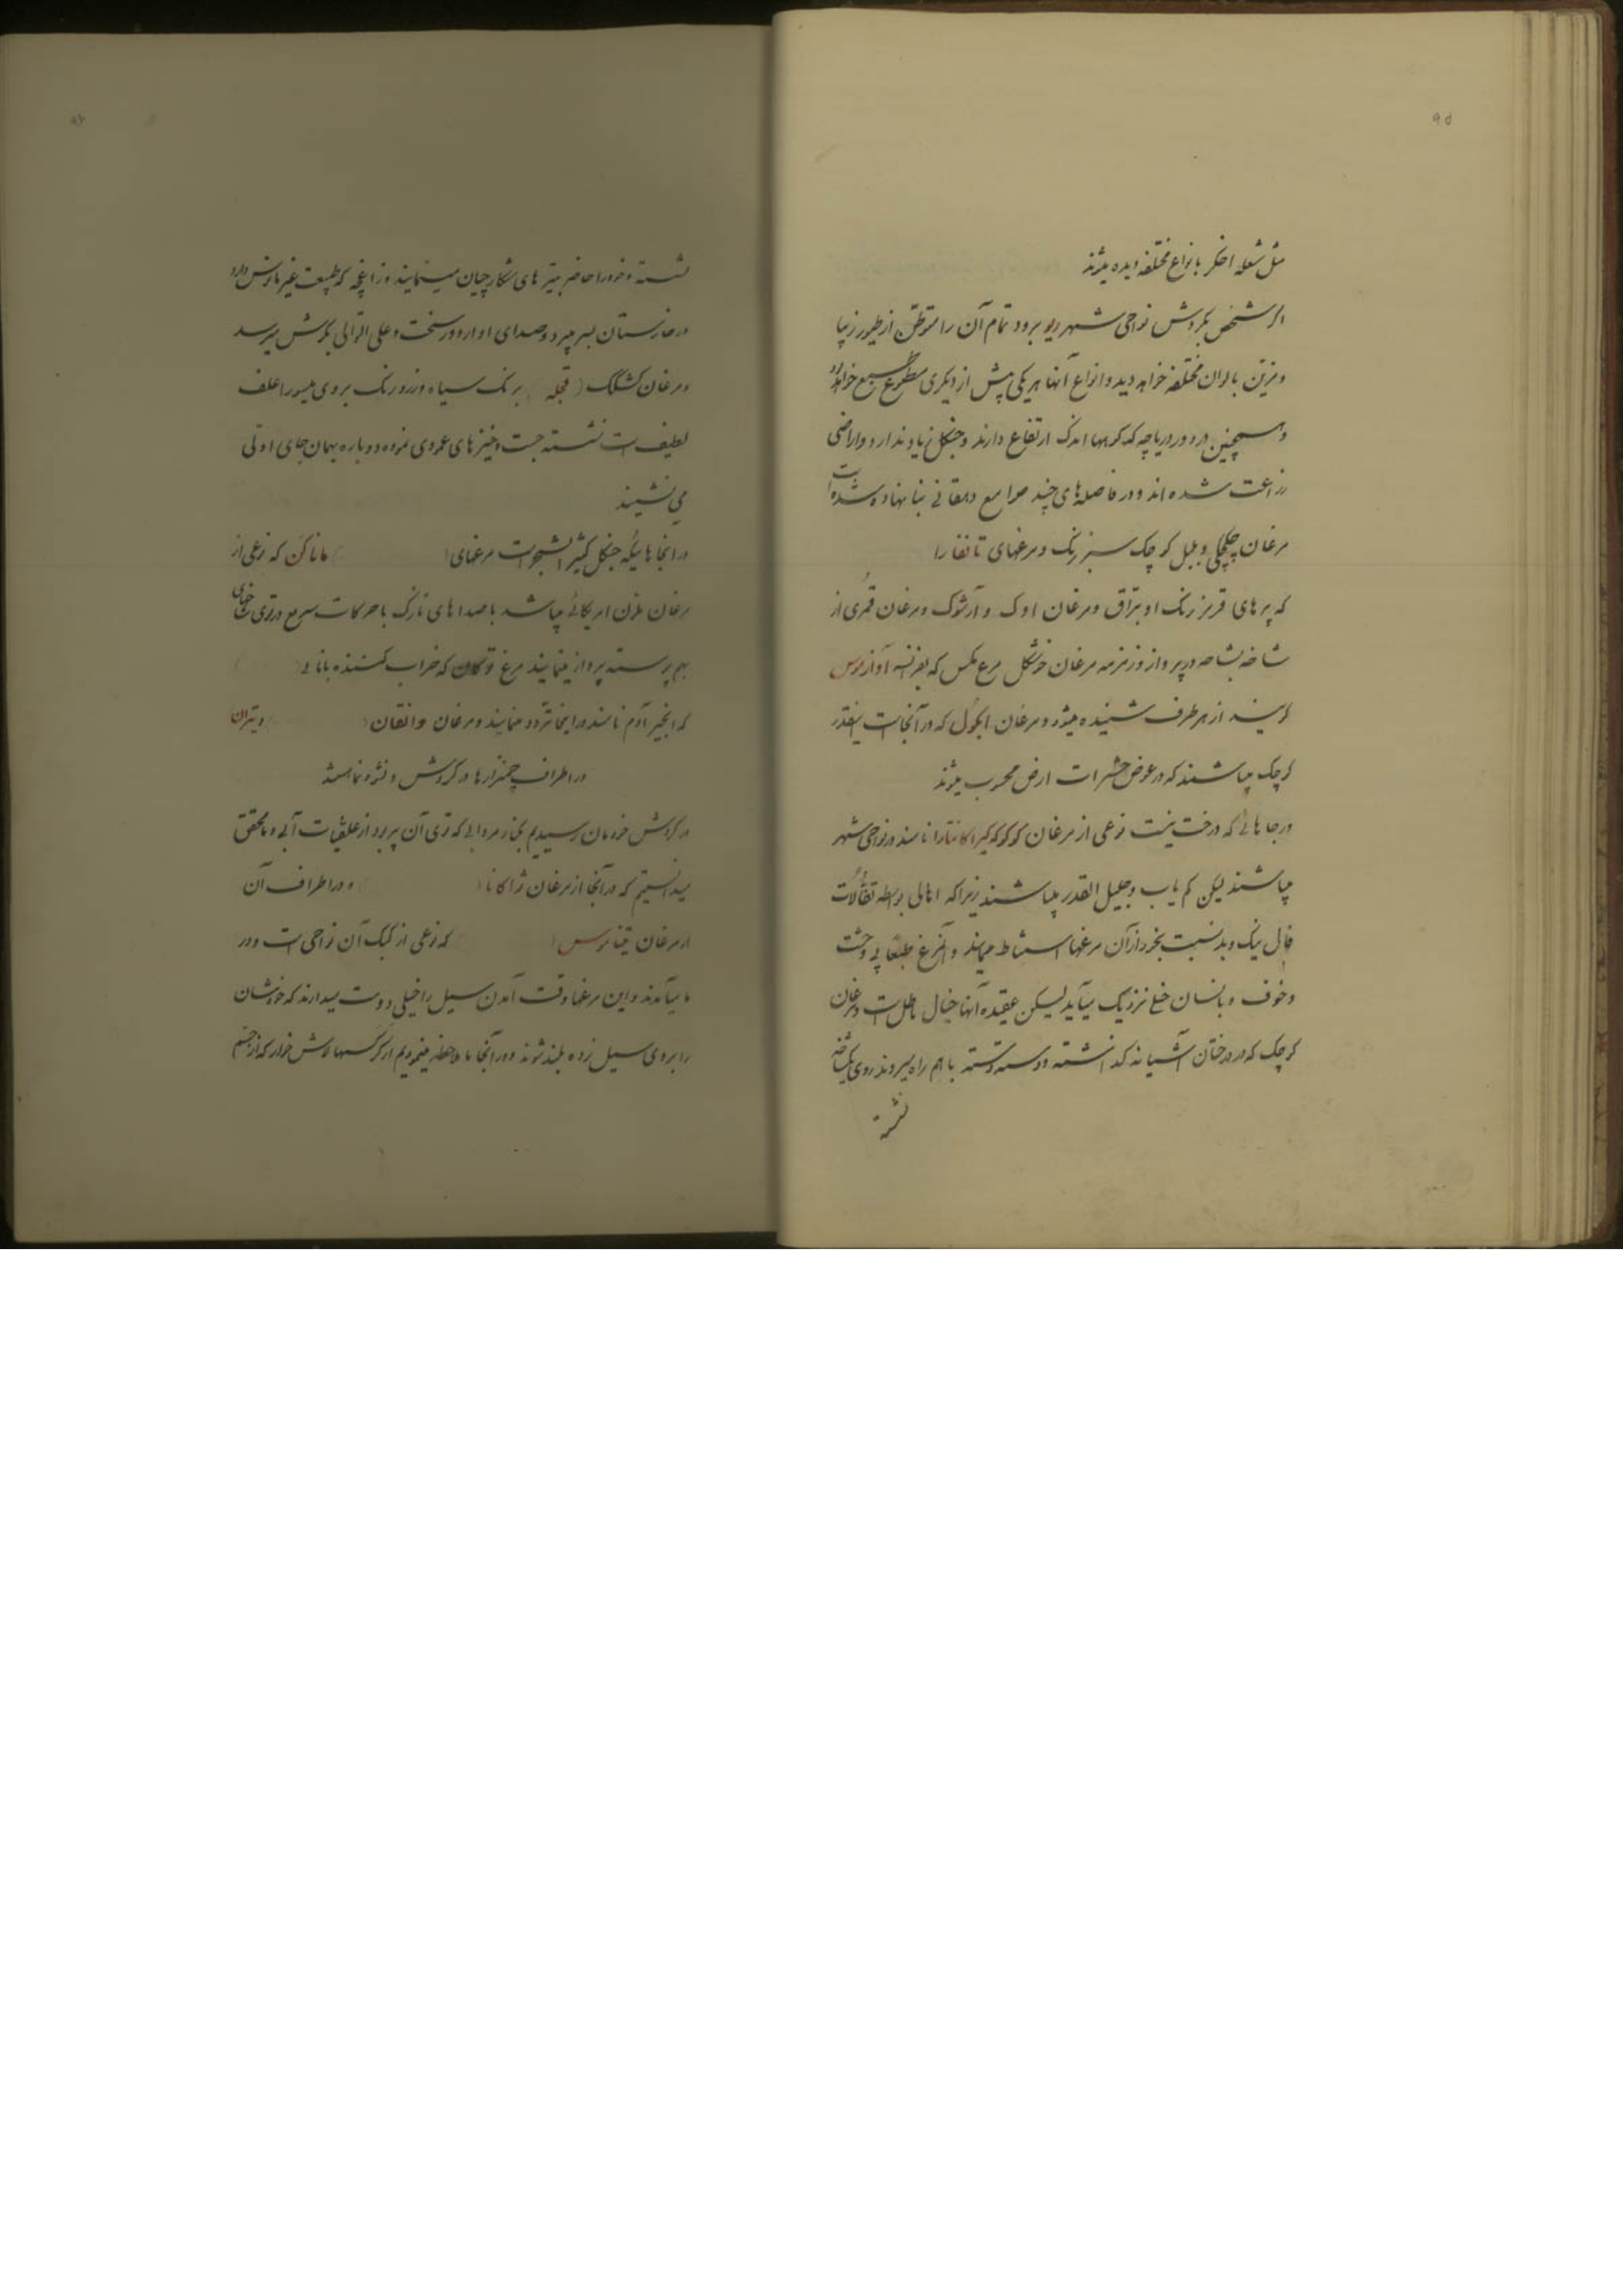 ۹۵
مثل شعله اخکر بانواع مختلفه دیده میشوند
اکر شخص بکردش نواحی شهر ریو برود تمام آن را متوطن از طیور زیبا
و مزین بالوان مختلفه خواهد دید و انواع آنها هر یکی پیش از دیکری مطبوع طبع خواهد بود
و همچنین در دور دریاچه که کوهها اندک ارتفاع دارند و جنکل زیاد ندارد و اراضی
زراعت شده اند و در فاصله‌های چند صوامع دهقانی بنا نهاده شده است
مرغان جلجلکی و بلبل کوچک سبز رنک و مرغهای تانقارا
که پرهای قرمز رنک او براق و مرغان اوک و آرشوک و مرغان قمری از
شاخه بشاخه در پرواز و زمزمه مرغان خوشکل مرغ مکس که بفرانسه آوازموس
کویند از هر طرف شنیده میشود و مرغان ابکول که در آنجاست اینقدر
کوچک میباشند که در عوض حشرات ارض محسوب میشوند
در جاهائی که درخت نیست نوعی از مرغان کوکو که کیراکانتارا نامند در نواحی شهر
میباشند لیکن کم یاب و جلیل القدر میباشند زیرا که اهالی بواسطه تفألات
فال نیک و بد نسبت بخود از آن مرغها استنباط مینمایند و آنمرغ طبعا بی وحشت
و خوف و بانسان خیلی نزدیک میآید لیکن عقیده آنها خیال باطل است و مرغان
کوچک که در درختان آشیانه کذاشته و دسته دسته با هم راه میروند روی یکشاخه
نشسته
۹۶
نشسته و خود را حاضر بتیر های شکارچیان مینمایند و زاغچه که طبیعت غیر مانوس دارد
در خارستان بسر میبرد و صدای او از دور سخت و علی التوالی بکوش میرسد
و مرغان کشکک ( قجله ) برنک سیاه و زرد رنک بروی میسورا علف
لطیف است نشسته جست و خیز های عمودی نموده دوباره بهمان جای اولی
می نشیند
در انجاهائیکه جنکل کثیر الشجر است مرغهای ( ) ماناکن که نوعی از
مرغان مزن امریکائی میباشد با صداهای نازک با حرکات سریع در توی شاخهای
بهم پرسته پرواز مینمایند مرغ توکان که خراب کننده باناني ( )
که انجیر آدم نامند در اینجا تردد مینمایند و مرغان وانقان ( ) و تیران
در اطراف چمنزارها در کردش و نشو و نما هستند
در کردش خودمان رسیدیم بکنار مردابی که توی آن پر بود از علفیات آبی و ما محقق
میدانستیم که در آنجا از مرغان ژاکانا ( ) و در اطراف آن
از مرغان تینا موس ( که نوعی از کبک آن نواحی است و در
ما میآمدند و این مرغها وقت آمدن سیل را خیلی دوست میدارند که خودشان
را بروی سیل زده بلند شوند و در آنجا ملاحظه مینمودیم از کرکسها لاش خوار که از جسم